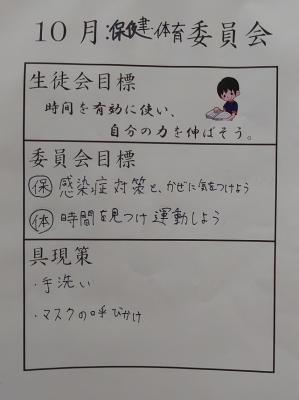 10月 保健・体育委員会
生徒会目標
時間を有効に使い、
自分の力を伸ばそう。
委員会目標
保 感染症対策と、かぜに気をつけよう
体 時間を見つけ運動しよう
具現策
・手洗い
・マスクの呼びかけ